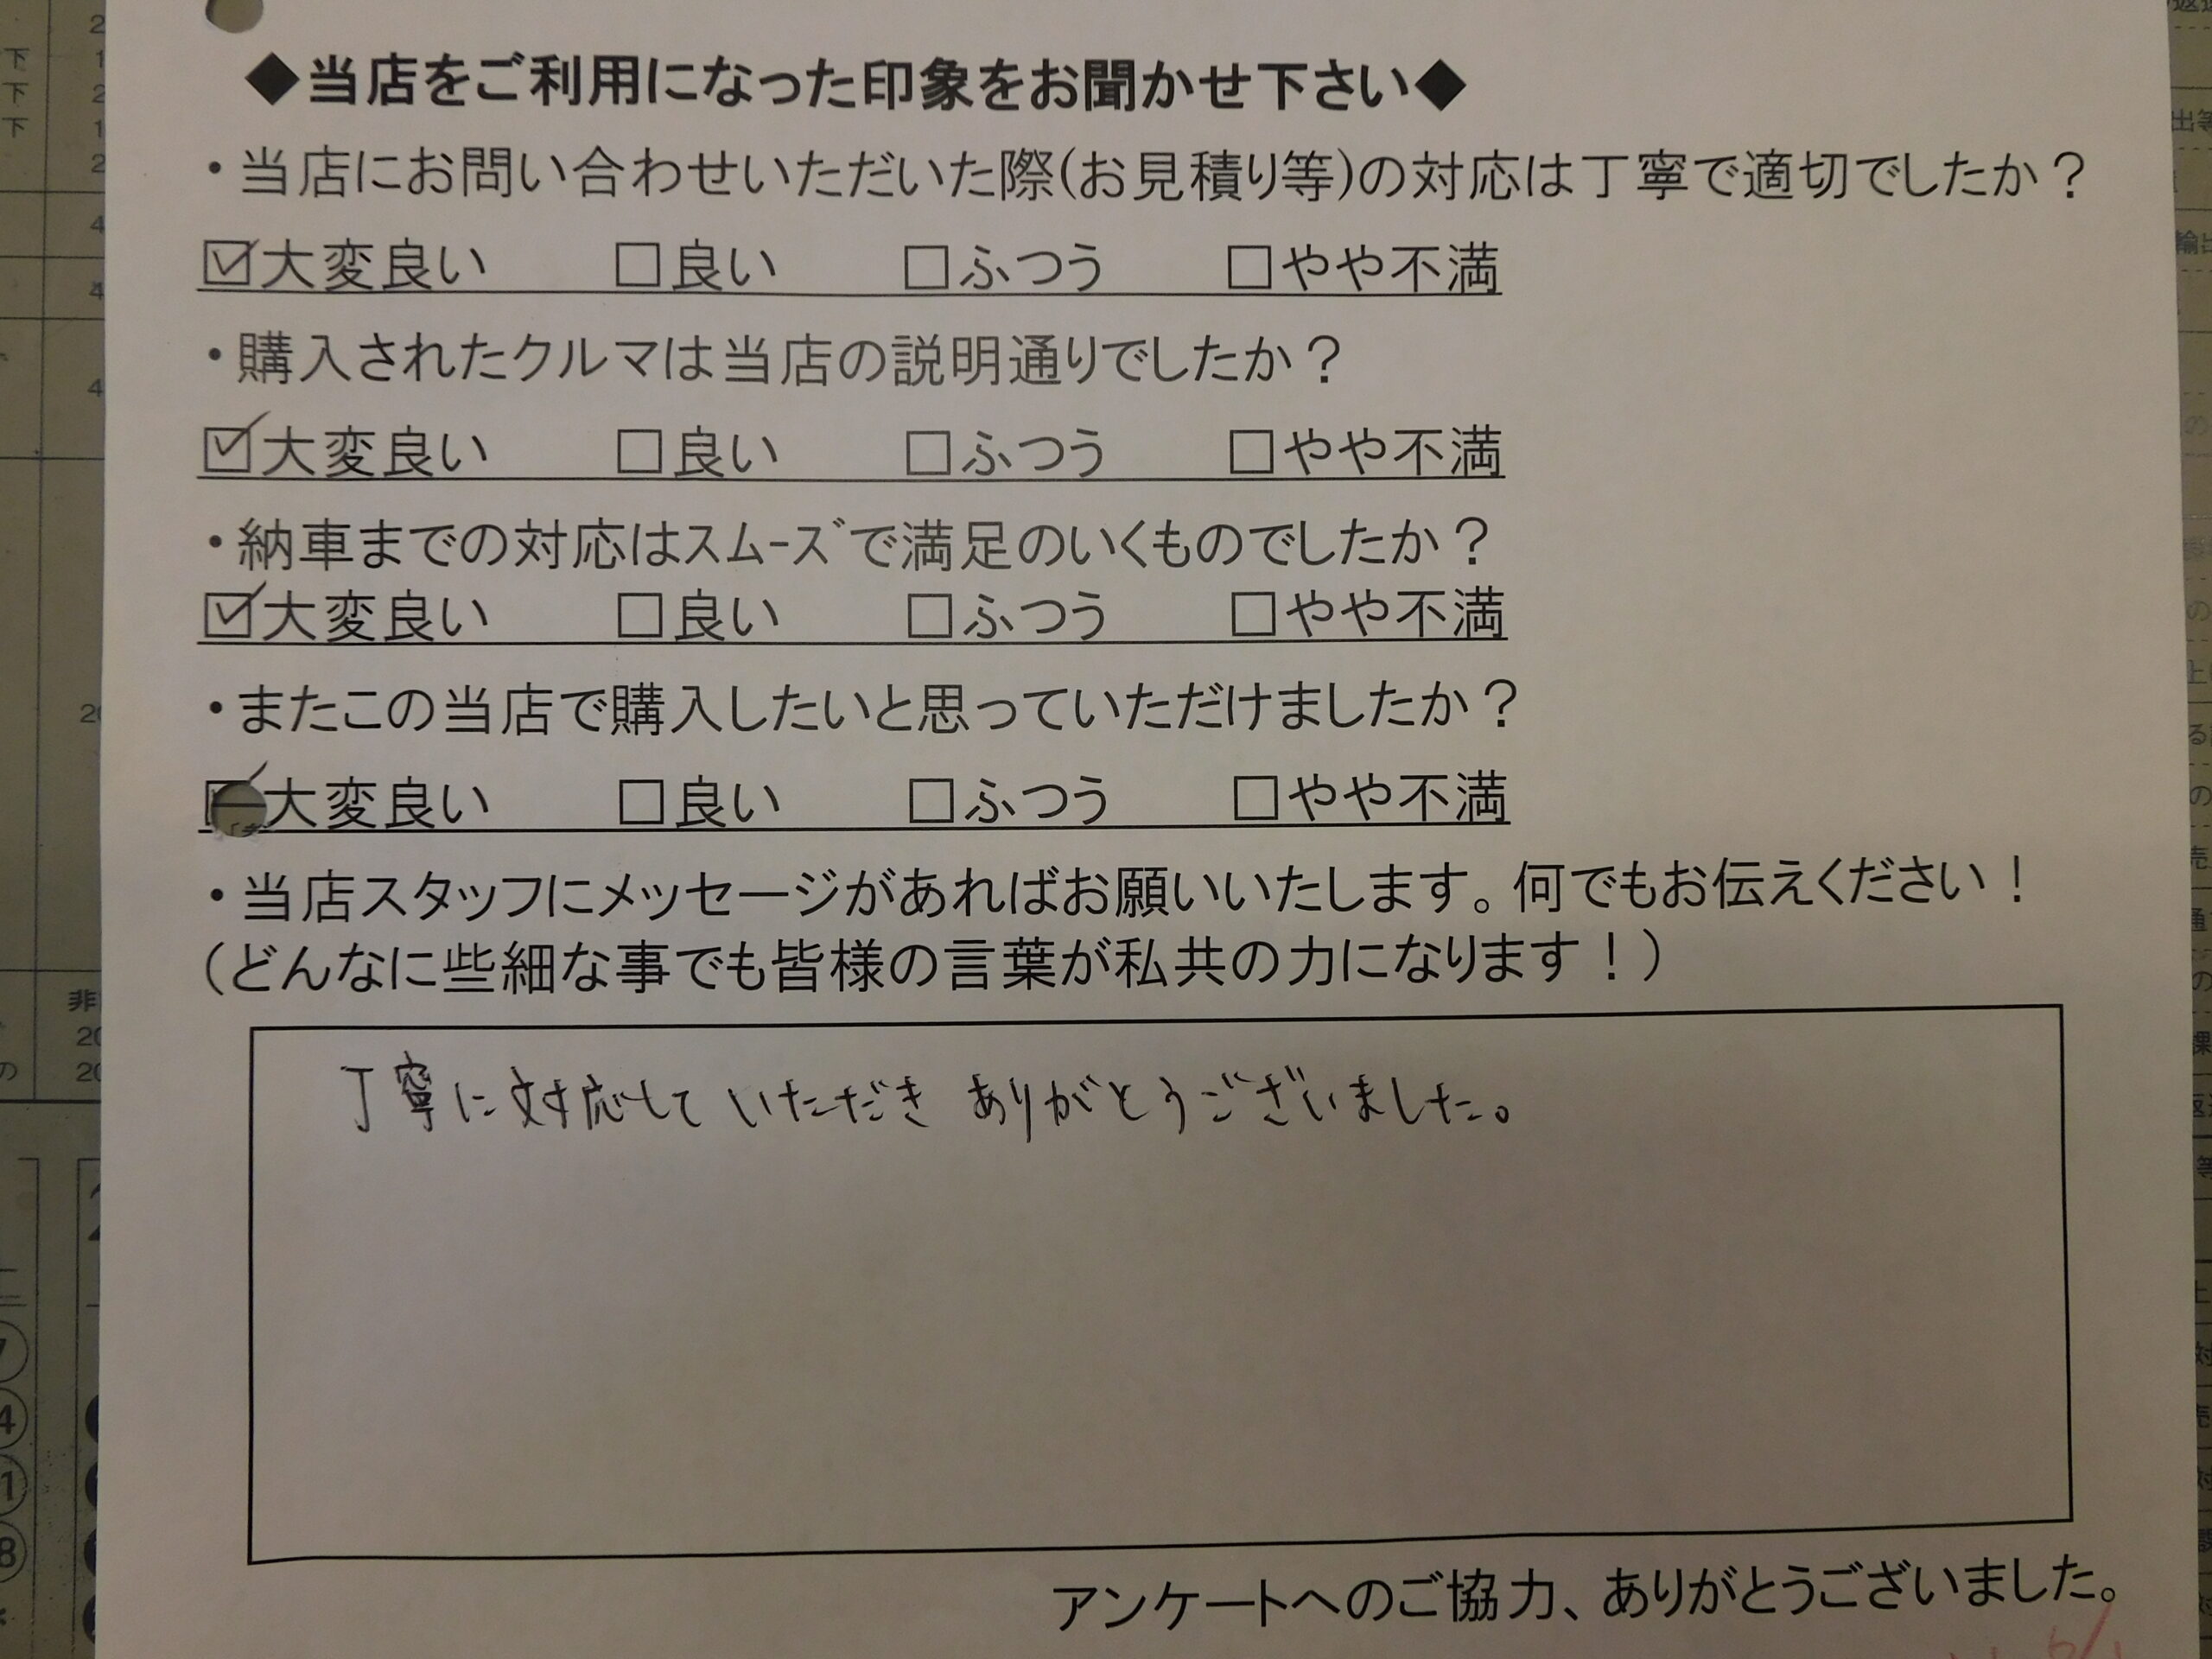 ◆当店をご利用になった印象をお聞かせ下さい◆
・当店にお問い合わせいただいた際(お見積り等)の対応は丁寧で適切でしたか？
☑大変良い □良い □ふつう □やや不満
・購入されたクルマは当店の説明通りでしたか？
☑大変良い □良い □ふつう □やや不満
・納車までの対応はｽﾑｰｽﾞで満足のいくものでしたか？
☑大変良い □良い □ふつう □やや不満
・またこの当店で購入したいと思っていただけましたか？
☑大変良い □良い □ふつう □やや不満
・当店スタッフにメッセージがあればお願いいたします。何でもお伝えください！
（どんなに些細な事でも皆様の言葉が私共の力になります！）
丁寧に対応して いただき ありがとうございました。
アンケートへのご協力、ありがとうございました。